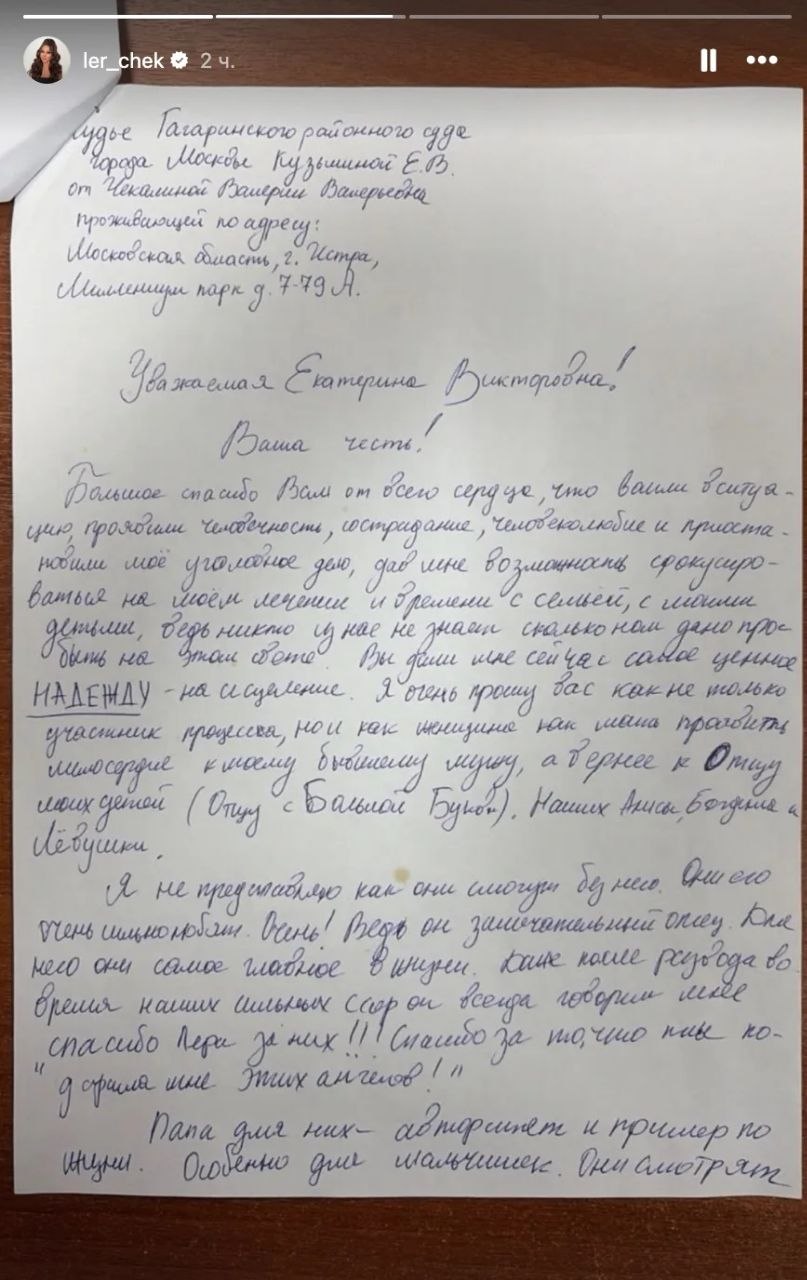 ler_chek 2 ч.
Судье Гагаринского районного суда
города Москвы Кузьминой Е.В.
от Чекалиной Валерии Валерьевна
проживающей по адресу:
Московская область, г. Истра,
Миллениум парк д. 7-79 А.
Уважаемая Екатерина Викторовна!
Ваша честь!
Большое спасибо Вам от всего сердца, что вошли в ситуа-
цию, проявили человечность, сострадание, человеколюбие и приоста-
новили моё уголовное дело, дав мне возможность сфокусиро-
ваться на моём лечении и времени с семьёй, с моими
детьми, ведь никто из нас не знает сколько нам дано про-
быть на этом свете. Вы дали мне сейчас самое ценное
НАДЕЖДУ - на исцеление. Я очень прошу вас как не только
участник процесса, но и как женщина как мама проявить
милосердие к моему бывшему мужу, а вернее к Отцу
моих детей (Отцу с Большой Буквы). Наших Алисы, Богдана и
Лёвушки.
Я не представляю как они смогут без него. Они его
очень сильно любят. Очень! Ведь он замечательный отец. Для
него они самое главное в жизни. Даже после развода во
время наших сильных ссор он всегда говорил мне
спасибо Лера за них!!! Спасибо за то, что ты по-
"дарила мне этих ангелов!"
Папа для них - авторитет и пример по
жизни. Особенно для мальчишек. Они смотрят